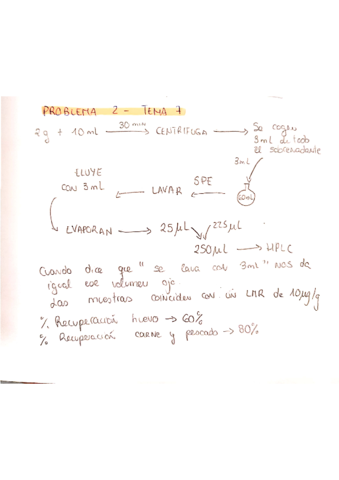 PROBLEMA 2 - TEMA 7
2g + 10 mL 30 min CENTRIFUGA Se cogen
3 mL de todo
el sobrenadante
3mL
ELUYE
CON 3 mL LAVAR SPE 60mL
EVAPORAN 25 µL 225 µL
250 µL HPLC
Cuando dice que "se lava con 3ml" nos da
igual ese volumen ojo
Las muestras coinciden con un LMR de 10 µg/g
% Recuperación huevo → 60%
% Recuperación carne y pescado → 80%